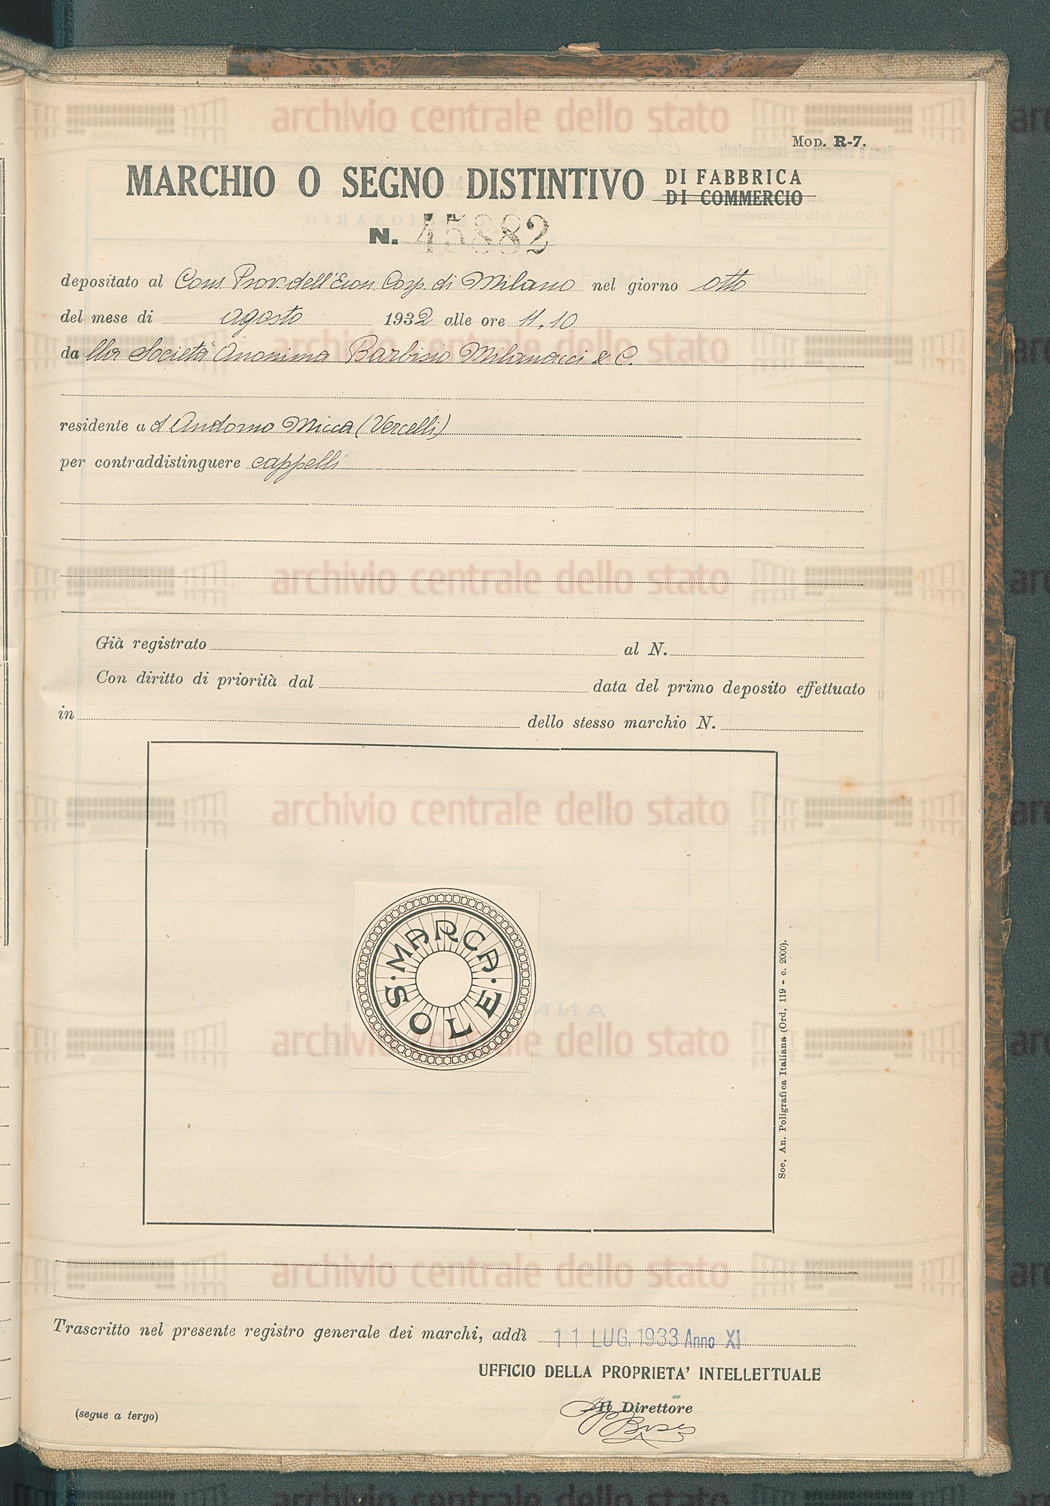 archivio centrale dello stato
MOD. R-7.
MARCHIO O SEGNO DISTINTIVO DI FABBRICA
DI COMMERCIO
N. 45882
depositato al Cons. Prov. dell'Econ. Corp. di Milano nel giorno otto
del mese di agosto 1932 alle ore 11.10
da lla Società Anonima Barbisio Milanaccio & C.
residente a d Andorno Micca (Vercelli)
per contraddistinguere cappelli
archivio centrale dello stato
Già registrato al N.
Con diritto di priorità dal data del primo deposito effettuato
in dello stesso marchio N.
archivio centrale dello stato
MARCA
SOLE
Soc. An. Poligrafica Italiana (Ord. 119 - c. 2000).
archivio centrale dello stato
archivio centrale dello stato
Trascritto nel presente registro generale dei marchi, addì 11 LUG. 1933 Anno XI
UFFICIO DELLA PROPRIETA' INTELLETTUALE
Il Direttore
(segue a tergo)